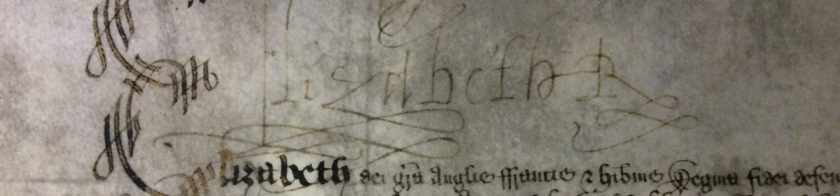 Elizabeth R
Elizabeth dei gra Anglie ffrancie & hibnie Regina fidei defen